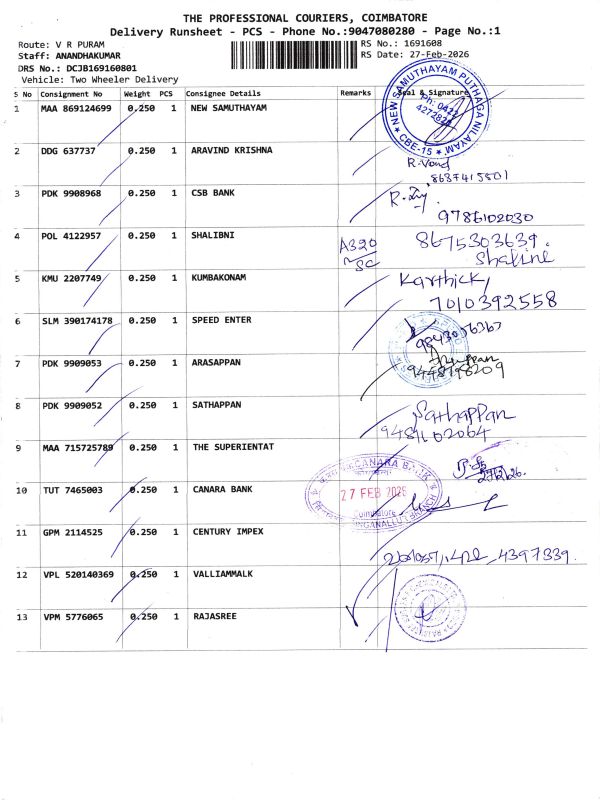 THE PROFESSIONAL COURIERS, COIMBATORE
Delivery Runsheet - PCS - Phone No.:9047080280 - Page No.:1
Route: V R PURAM
RS No.: 1691608
Staff: ANANDHAKUMAR
RS Date: 27-Feb-2026
DRS No.: DCJB169160801
Vehicle: Two Wheeler Delivery
S No Consignment No Weight PCS Consignee Details Remarks Seal & Signature
1 MAA 869124699 0.250 1 NEW SAMUTHAYAM
NEW SAMUTHAYAM PUTHAGA NILAYAM
Ph: 0422
CBE-15
2 DDG 637737 0.250 1 ARAVIND KRISHNA
8637415801
3 PDK 9908968 0.250 1 CSB BANK
9786102030
4 POL 4122957 0.250 1 SHALIBNI A320 8675303639.
SC
5 KMU 2207749 0.250 1 KUMBAKONAM Karthick,
7010392558
6 SLM 390174178 0.250 1 SPEED ENTER
7 PDK 9909053 0.250 1 ARASAPPAN
8 PDK 9909052 0.250 1 SATHAPPAN Sathappan
9 MAA 715725789 0.250 1 THE SUPERIENTAT
10 TUT 7465003 0.250 1 CANARA BANK
CANARA BANK
27 FEB 2026
Coimbatore
11 GPM 2114525 0.250 1 CENTURY IMPEX
4397339.
12 VPL 520140369 0.250 1 VALLIAMMALK
13 VPM 5776065 0.250 1 RAJASREE